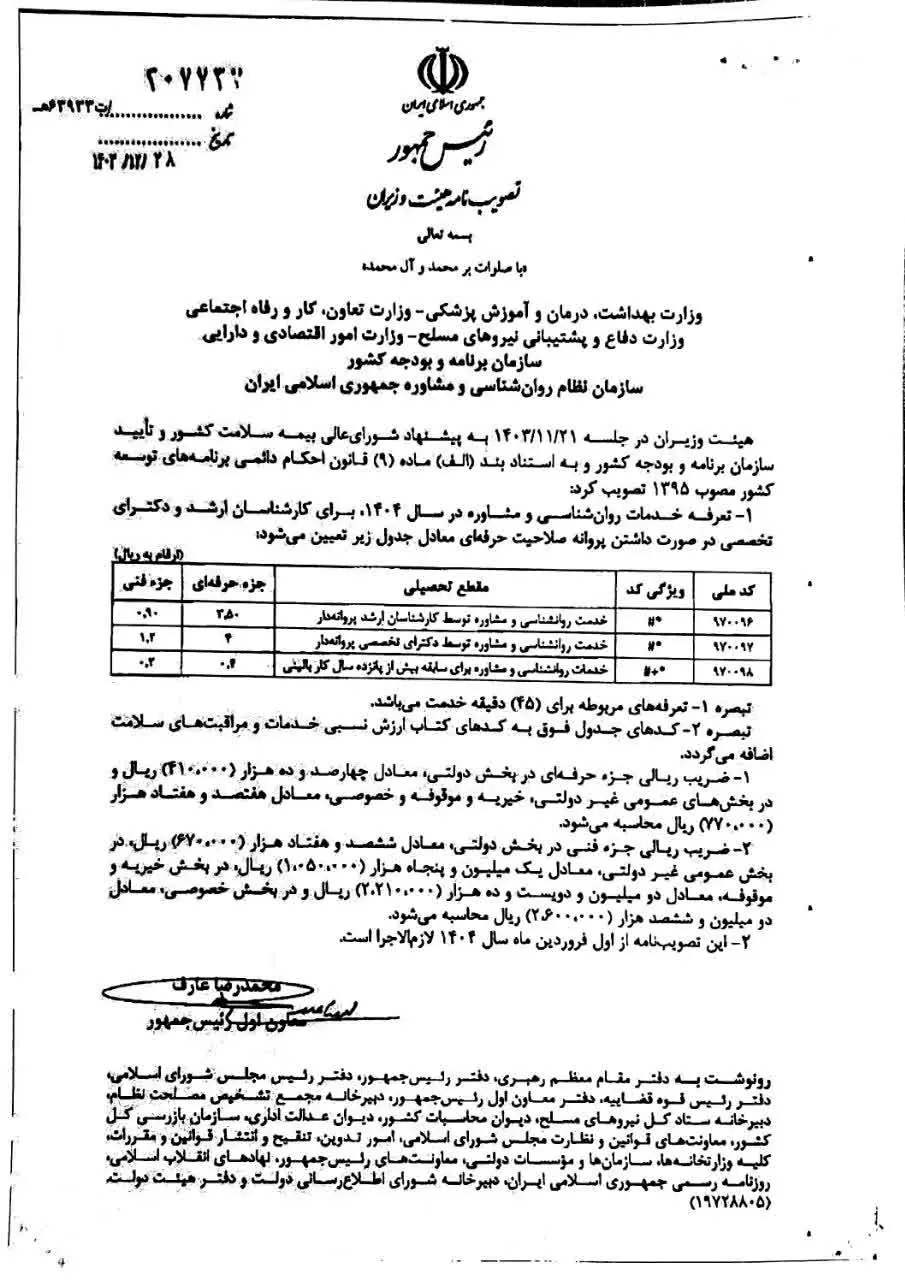 جمهوری اسلامی ایران
رئیس جمهور
تصویب نامه هیئت وزیران
شماره .................. /ت۶۳۹۳۳هـ
تاریخ ..................
۱۴۰۳/۱۲/۲۸
بسمه تعالی
«با صلوات بر محمد و آل محمد»
وزارت بهداشت، درمان و آموزش پزشکی - وزارت تعاون، کار و رفاه اجتماعی
وزارت دفاع و پشتیبانی نیروهای مسلح - وزارت امور اقتصادی و دارایی
سازمان برنامه و بودجه کشور
سازمان نظام روان‌شناسی و مشاوره جمهوری اسلامی ایران
هیئت وزیران در جلسه ۱۴۰۳/۱۱/۲۱ به پیشنهاد شورای‌عالی بیمه سلامت کشور و تأیید
سازمان برنامه و بودجه کشور و به استناد بند (الف) ماده (۹) قانون احکام دائمی برنامه‌های توسعه
کشور مصوب ۱۳۹۵ تصویب کرد:
۱- تعرفه خدمات روان‌شناسی و مشاوره در سال ۱۴۰۴، برای کارشناسان ارشد و دکترای
تخصصی در صورت داشتن پروانه صلاحیت حرفه‌ای معادل جدول زیر تعیین می‌شود:
(ارقام به ریال)
کد ملی ویژگی کد مقطع تحصیلی جزء حرفه‌ای جزء فنی
۹۷۰۰۹۶ #* خدمت روانشناسی و مشاوره توسط کارشناسان ارشد پروانه‌دار ۳.۵۰ ۰.۹۰
۹۷۰۰۹۷ #* خدمت روانشناسی و مشاوره توسط دکترای تخصصی پروانه‌دار ۴ ۱.۲
۹۷۰۰۹۸ #+* خدمات روانشناسی و مشاوره برای سابقه بیش از پانزده سال کار بالینی ۰.۴ ۰.۲
تبصره ۱- تعرفه‌های مربوطه برای (۴۵) دقیقه خدمت می‌باشد.
تبصره ۲- کدهای جدول فوق به کدهای کتاب ارزش نسبی خدمات و مراقبت‌های سلامت
اضافه می‌گردد.
۱- ضریب ریالی جزء حرفه‌ای در بخش دولتی، معادل چهارصد و ده هزار (۴۱۰،۰۰۰) ریال و
در بخش‌های عمومی غیر دولتی، خیریه و موقوفه و خصوصی، معادل هفتصد و هفتاد هزار
(۷۷۰،۰۰۰) ریال محاسبه می‌شود.
۲- ضریب ریالی جزء فنی در بخش دولتی، معادل ششصد و هفتاد هزار (۶۷۰،۰۰۰) ریال، در
بخش عمومی غیر دولتی، معادل یک میلیون و پنجاه هزار (۱،۰۵۰،۰۰۰) ریال، در بخش خیریه و
موقوفه، معادل دو میلیون و دویست و ده هزار (۲،۲۱۰،۰۰۰) ریال و در بخش خصوصی، معادل
دو میلیون و ششصد هزار (۲،۶۰۰،۰۰۰) ریال محاسبه می‌شود.
۲- این تصویب‌نامه از اول فروردین ماه سال ۱۴۰۴ لازم‌الاجرا است.
محمدرضا عارف
معاون اول رئیس جمهور
رونوشت به دفتر مقام معظم رهبری، دفتر رئیس‌جمهور، دفتر رئیس مجلس شورای اسلامی،
دفتر رئیس قوه قضاییه، دفتر معاون اول رئیس‌جمهور، دبیرخانه مجمع تشخیص مصلحت نظام،
دبیرخانه ستاد کل نیروهای مسلح، دیوان محاسبات کشور، دیوان عدالت اداری، سازمان بازرسی کل
کشور، معاونت‌های قوانین و نظارت مجلس شورای اسلامی، امور تدوین، تنقیح و انتشار قوانین و مقررات،
کلیه وزارتخانه‌ها، سازمان‌ها و مؤسسات دولتی، معاونت‌های رئیس‌جمهور، نهادهای انقلاب اسلامی،
روزنامه رسمی جمهوری اسلامی ایران، دبیرخانه شورای اطلاع‌رسانی دولت و دفتر هیئت دولت.
(۱۹۷۲۸۸۰۵)